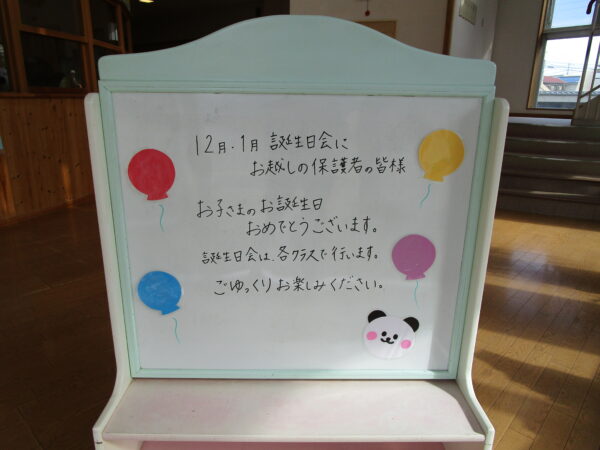 12月・1月 誕生日会に
お越しの保護者の皆様
お子さまのお誕生日
おめでとうございます。
誕生日会は、各クラスで行います。
ごゆっくりお楽しみください。